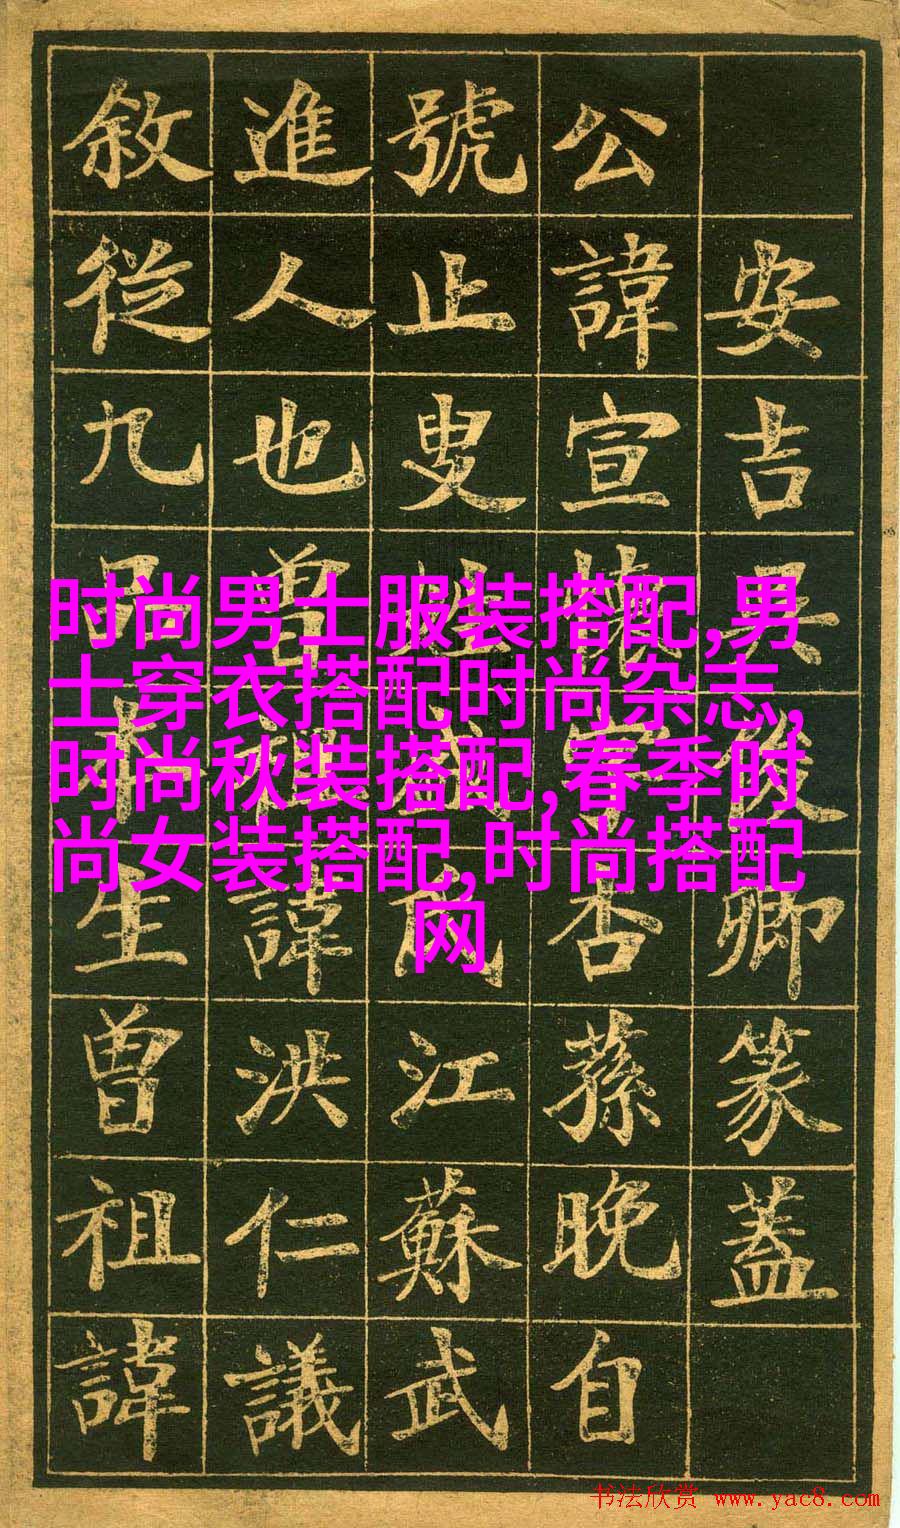 安吉吳俊卿篆蓋
公諱宣懷字杏蓀晚自
號止叟姓盛氏江蘇武
進人也曾祖諱洪仁議
敘從九品本生曾祖諱
时尚男士服装搭配,男
士穿衣搭配时尚杂志,
时尚秋装搭配,春季时
尚女装搭配,时尚搭配
网
书法欣赏 www.yac8.com